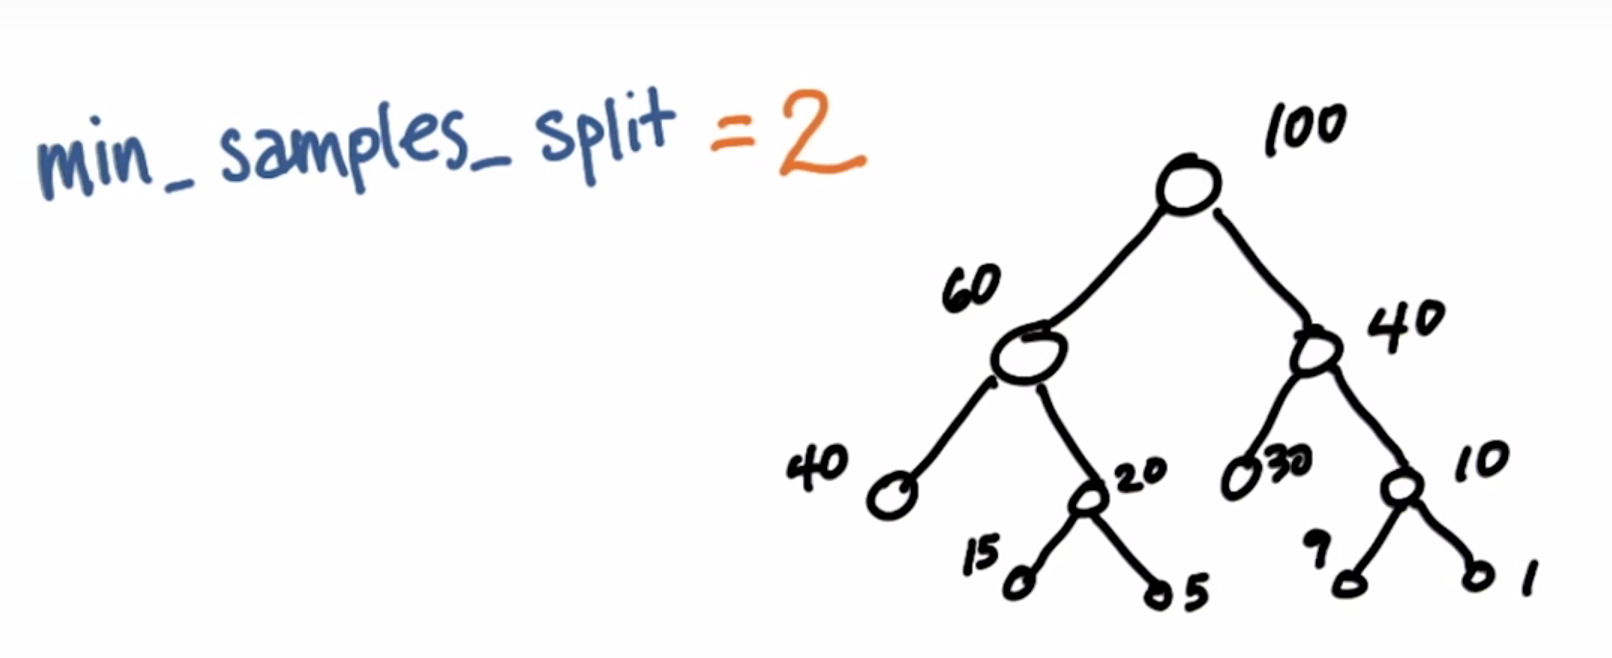 min_samples_split = 2
100
60
40
40
20
30
10
15
5
9
1